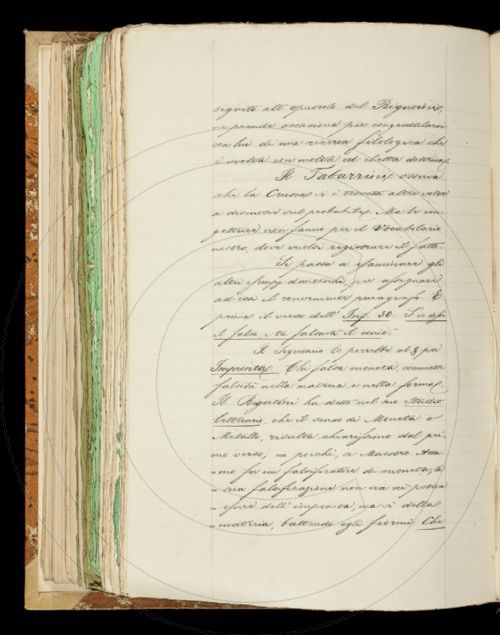 seguito all'opuscolo del Bigorini,
ne prende occasione per congratularsi
con lui di una ricerca filologica che
è svolta con molta ed eletta dottrina.
Il Tabarrini osserva
che la Crusca si è trovata altre volte
a discutere sul probabile. Ma le con-
getture non fanno per il Vocabolario
nostro, dove vuolsi registrare il fatto.
Si passa a esaminare gli
altri esempj danteschi, per assegnare
ad essi il conveniente paragrafo. E
prima il verso dell'Inf. 30. S'io dissi
il falso, e tu falsasti il conio.
Il Segretario lo porrebbe al § per
Impronta. Chi falsa moneta, commette
falsità nella materia e nella forma.
Il ha detto nel suo Studio
letterario, che il senso di Moneta o
Metallo, risulta chiarissimo dal pri-
mo verso; = poichè, se Maestro Ada-
= mo fu un falsificatore di moneta, la
= sua falsificazione non era nè poteva
= essere dell'impronta, ma sì della
= materia, battendo egli fiorini Che